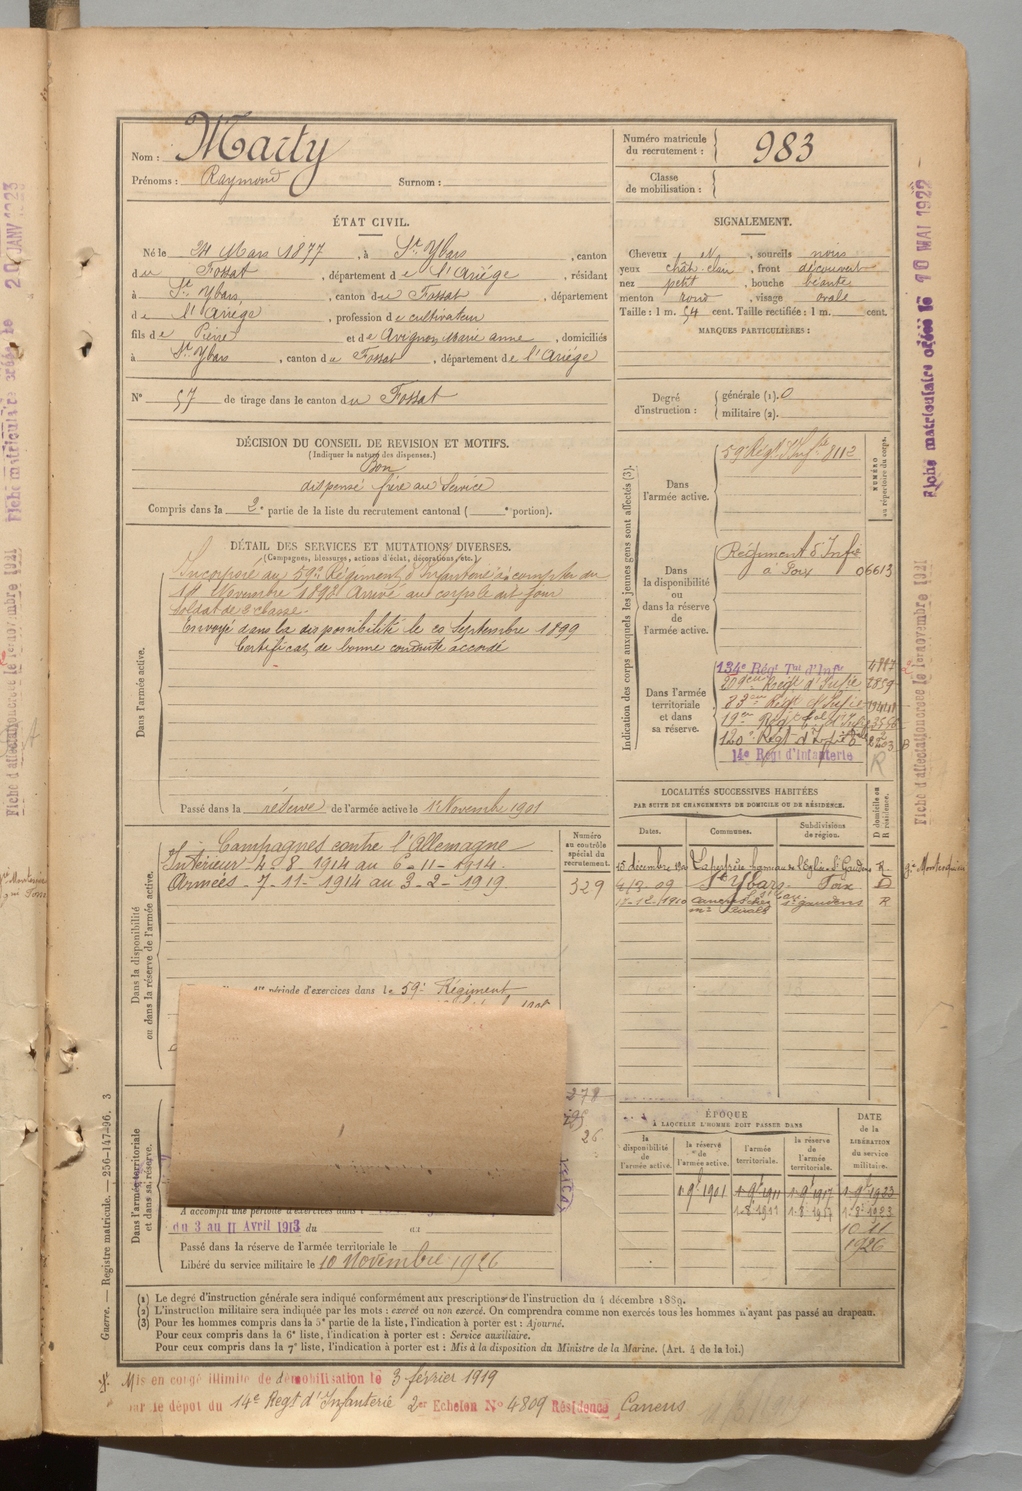 Nom : Marty
Prénoms : Raymond Surnom :
Numéro matricule du recrutement : 983
Classe de mobilisation :
ÉTAT CIVIL.
Né le 24 Mars 1877, à St Ybars, canton
du Fossat, département de l'Ariège, résidant
à St Ybars, canton du Fossat, département
de l'Ariège, profession de cultivateur
fils de Pierre et de Avignon Marie anne, domiciliés
à St Ybars, canton du Fossat, département de l'Ariège
N° 57 de tirage dans le canton du Fossat
SIGNALEMENT.
Cheveux N, sourcils noirs
yeux chât. clair, front découvert
nez petit, bouche béante
menton rond, visage ovale
Taille : 1 m. 54 cent. Taille rectifiée : 1 m. cent.
MARQUES PARTICULIÈRES :
Degré d'instruction :
générale (1). 0
militaire (2).
DÉCISION DU CONSEIL DE REVISION ET MOTIFS.
(Indiquer la nature des dispenses.)
Bon
dispensé frère au Service
Compris dans la 2e partie de la liste du recrutement cantonal ( e portion).
DÉTAIL DES SERVICES ET MUTATIONS DIVERSES.
(Campagnes, blessures, actions d'éclat, décorations, etc.)
Dans l'armée active.
Incorporé au 59e Régiment d'Infanterie à compter du
Novembre 1898 Arrivé au corps le dit jour
soldat de 2e classe.
Envoyé dans la disponibilité le 20 Septembre 1899
Certificat de bonne conduite accordé
Passé dans la réserve de l'armée active le 1er Novembre 1901
Indication des corps auxquels les jeunes gens sont affectés (3).
NUMÉRO au répertoire du corps.
Dans l'armée active.
59e Régt d'Infie 8112
Dans la disponibilité ou dans la réserve de l'armée active.
Régiment d'Infie
à Foix 06613
Dans l'armée territoriale et dans sa réserve.
134e Régt Tal d'Infie
209em Régt d'Infie
83em Régt d'Infie
19em Régt Col d'Infie
120e Régt d'Infie
14e Régt d'Infanterie
R
Dans la disponibilité ou dans la réserve de l'armée active.
Campagnes contre l'Allemagne
Intérieur - 4-8-1914 au 6-11-1914.
Armées - 7-11-1914 au 3-2-1919.
période d'exercices dans le 59e Régiment
Numéro au contrôle spécial du recrutement.
329
LOCALITÉS SUCCESSIVES HABITÉES
PAR SUITE DE CHANGEMENTS DE DOMICILE OU DE RÉSIDENCE.
Dates. Communes. Subdivisions de région. D domicile ou R résidence.
St Ybars Foix D
17-12-1910 St gaudens R
Dans l'armée territoriale et dans sa réserve.
278
26
A accompli une période d'exercices dans
du 3 au 11 Avril 1913 du
Passé dans la réserve de l'armée territoriale le
Libéré du service militaire le 10 Novembre 1926
ÉPOQUE
À LAQUELLE L'HOMME DOIT PASSER DANS
la disponibilité de l'armée active. la réserve de l'armée active. l'armée territoriale. la réserve de l'armée territoriale.
DATE de la LIBÉRATION du service militaire.
1.9bre 1901 1.9bre 1911 1.9bre 1917 1.9bre 1923
1.8.1911 1.8.1917 1.8.1923
10 11
1926
(1) Le degré d'instruction générale sera indiqué conformément aux prescriptions de l'instruction du 4 décembre 1889.
(2) L'instruction militaire sera indiquée par les mots : exercé ou non exercé. On comprendra comme non exercés tous les hommes n'ayant pas passé au drapeau.
(3) Pour les hommes compris dans la 5e partie de la liste, l'indication à porter est : Ajourné.
Pour ceux compris dans la 6e liste, l'indication à porter est : Service auxiliaire.
Pour ceux compris dans la 7e liste, l'indication à porter est : Mis à la disposition du Ministre de la Marine. (Art. 4 de la loi.)
Mis en congé illimité de démobilisation le 3 février 1919
sur le dépôt du 14e Régt d'Infanterie 2er Echelon N° 4809 Résidence Canens
Guerre. — Registre matricule. — 256-147-96. 3
Fiche matriculaire créée le 10 MAI 1922
Fiche d'affectation créée le 1er novembre 1921
Fiche matriculaire créée le 20 JANV 1923
Fiche d'affectation créée le 1er novembre 1921